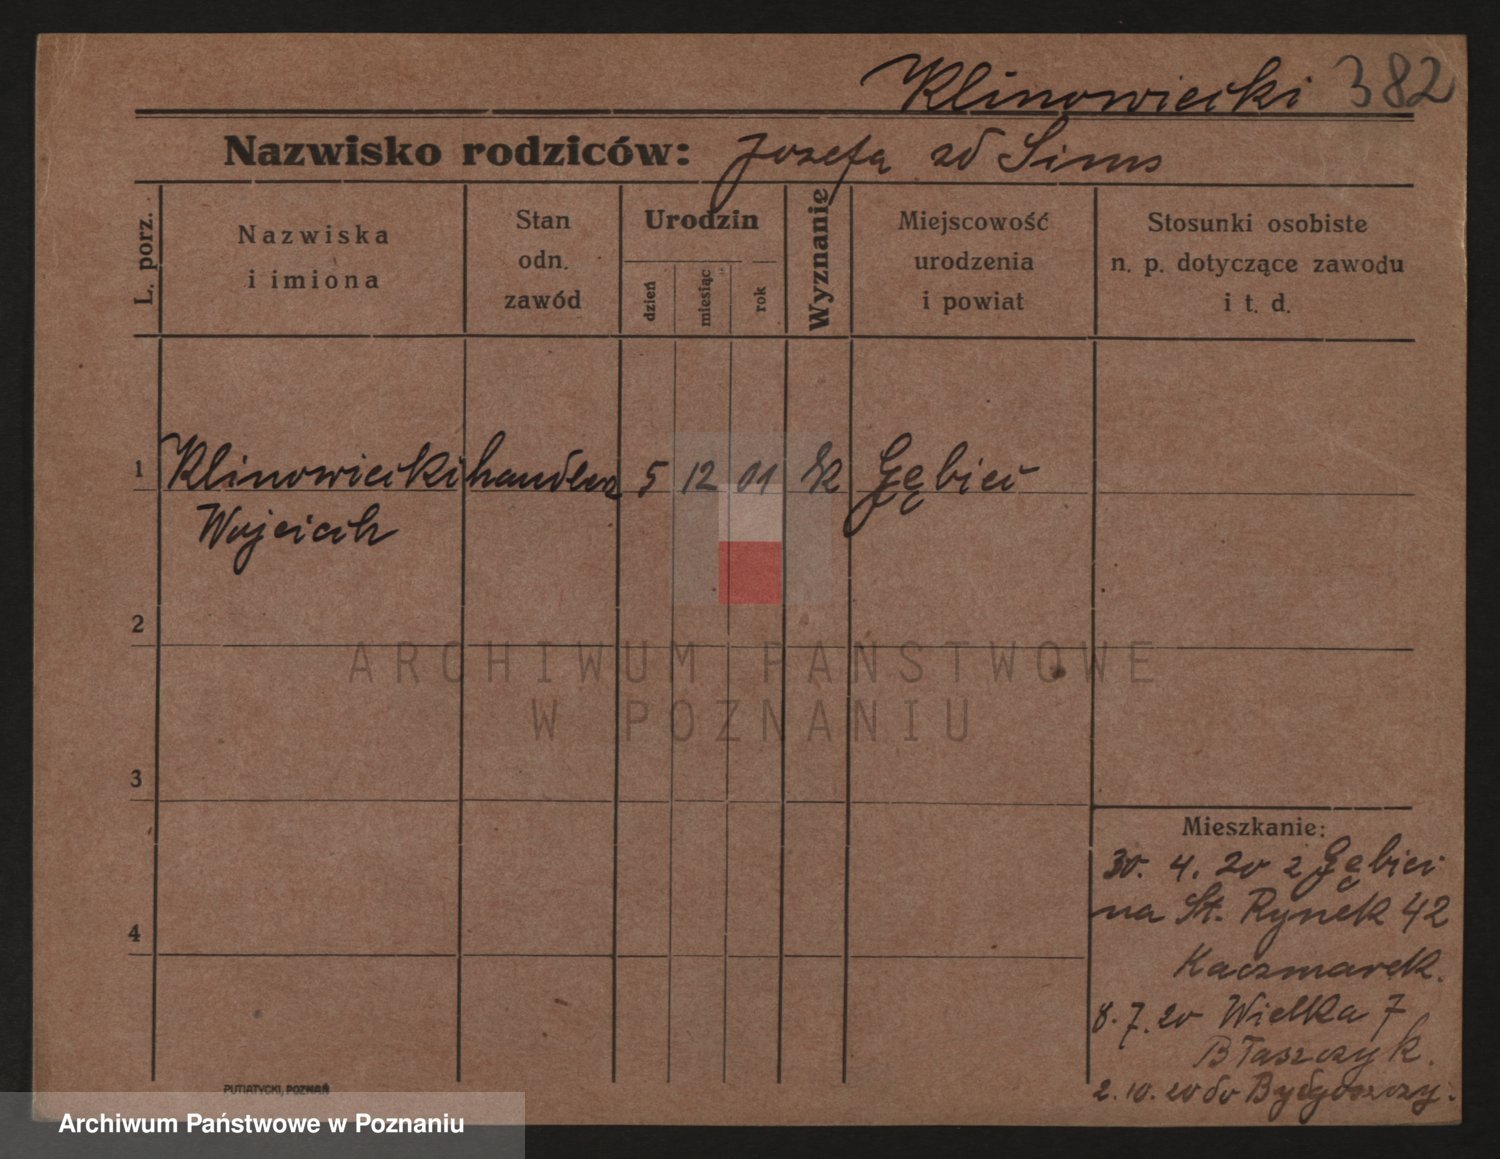 Klinowiecki 382
Nazwisko rodziców: Jozefa zd Sims
L. porz.
Nazwiska
i imiona
Stan
odn.
zawód
Urodzin
dzień
miesiąc
rok
Wyznanie
Miejscowość
urodzenia
i powiat
Stosunki osobiste
n. p. dotyczące zawodu
i t. d.
1 Klinowiecki handlowa 5 12 01 rk Gębice
Wojciech
2
ARCHIWUM PAŃSTWOWE
W POZNANIU
3
4
Mieszkanie:
30. 4. 20 z Gębici
na St. Rynek 42
Kaczmarek.
8. 7. 20 Wielka 7
Błaszczyk.
2. 10. 20 do Bydgoszczy.
PUTIATYCKI, POZNAŃ
Archiwum Państwowe w Poznaniu